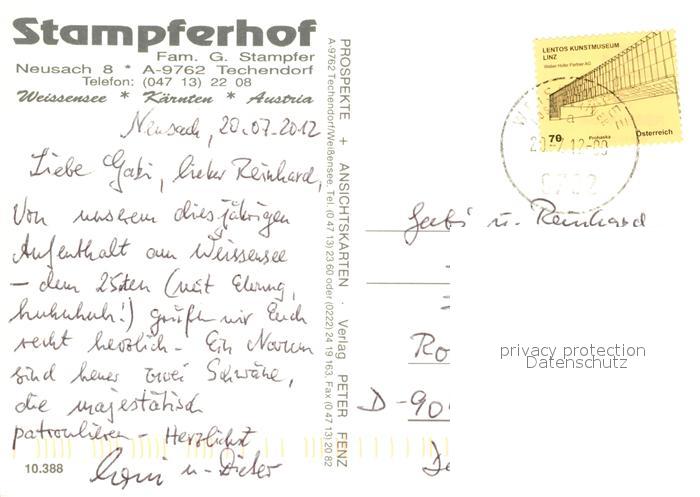 Stampferhof
Fam. G. Stampfer
Neusach 8 * A-9762 Techendorf
Telefon: (047 13) 22 08
Weissensee * Kärnten * Austria
Neusach, 20.07.2012
Liebe Gabi, lieber Reinhard,
Von unserem diesjährigen
Aufenthalt am Weissensee
– dem 25sten (mit Ehrung,
huhuhuh!) grüßen wir Euch
recht herzlich – Ein Novum
sind heuer zwei Schwäne,
die majestätisch
patroullieren – Herzlichst
u – Dieter
10.388
PROSPEKTE + ANSICHTSKARTEN · Verlag PETER FENZ
A-9762 Techendorf/Weißensee, Tel. (0 47 13) 23 60 oder (0222) 24 19 163, Fax (0 47 13) 20 82
LENTOS KUNSTMUSEUM
LINZ
Weber Hofer Partner AG
70
Prohaska
Österreich
Gabi u. Reinhard
Ro
D-90
privacy protection
Datenschutz